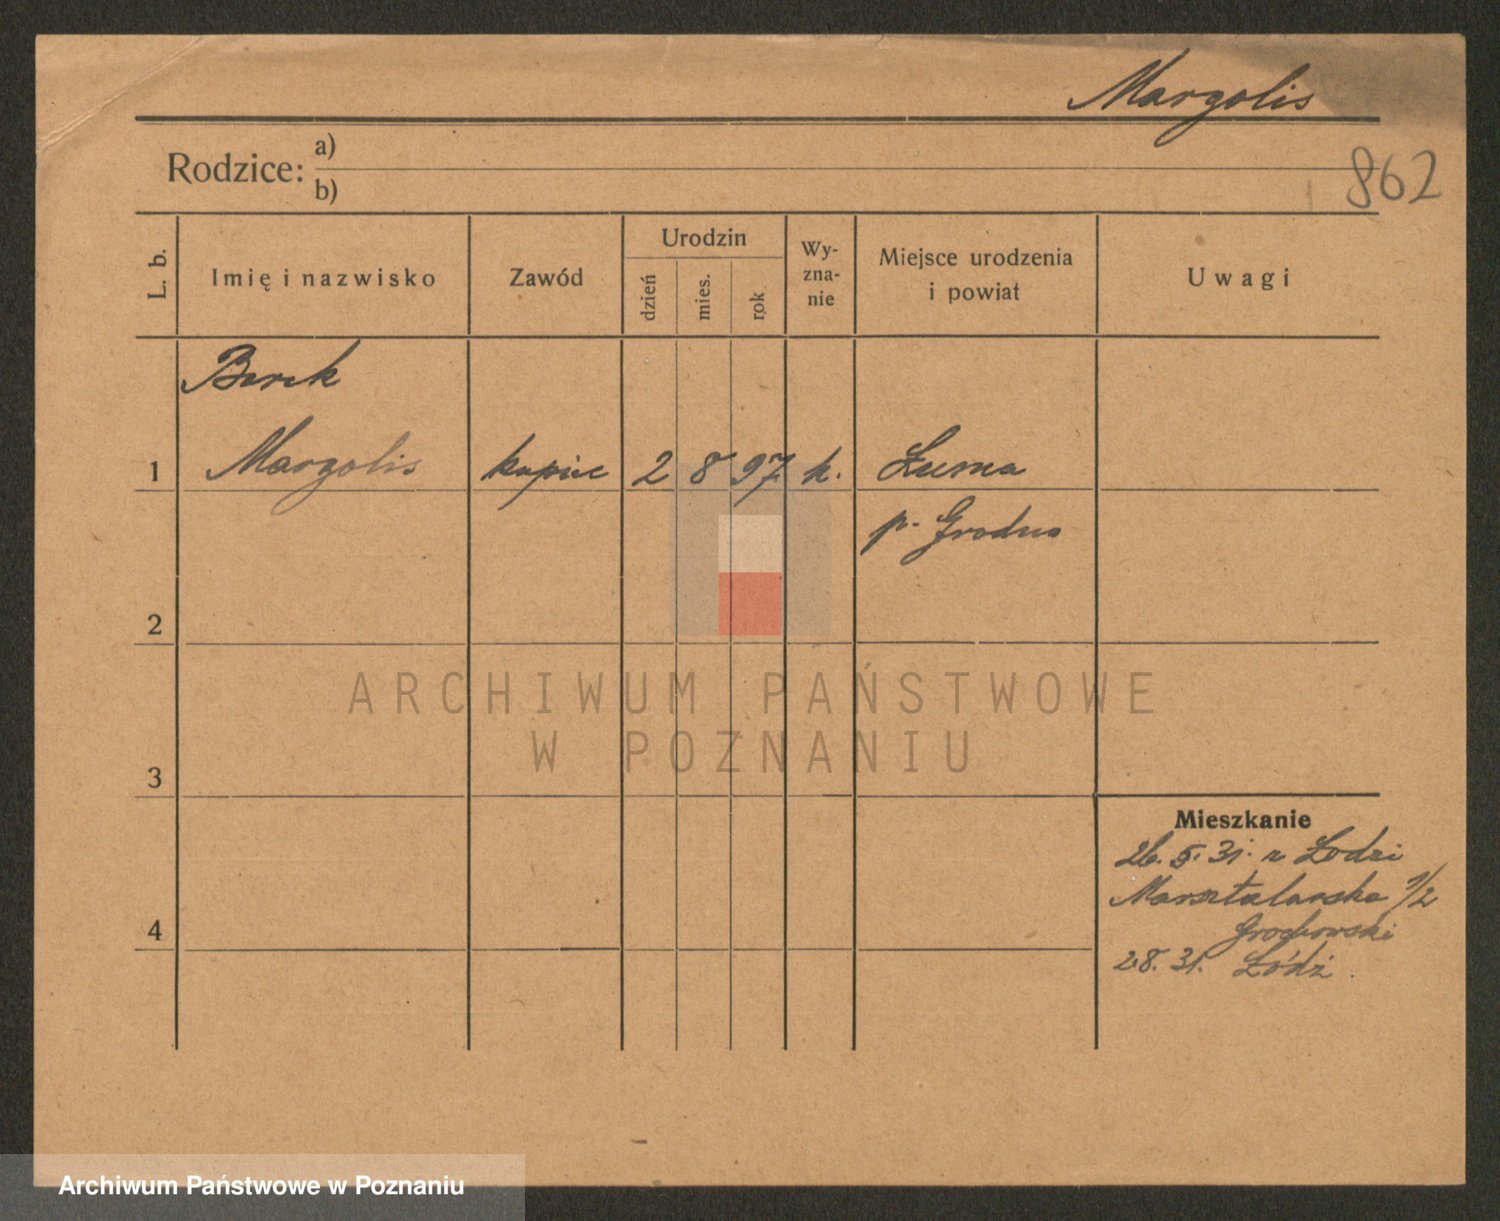 Margolis
Rodzice: a)
b)
862
L. b.
Imię i nazwisko
Zawód
Urodzin
dzień
mies.
rok
Wy-
zna-
nie
Miejsce urodzenia
i powiat
Uwagi
Berek
1 Margolis kupiec 2 8 97 k. Łunna
p. Grodno
2
3
4
Mieszkanie
26. 5. 31. z Łodzi
Marsztalarska 1/2
Grochowski
28. 31. Łódź.
ARCHIWUM PAŃSTWOWE
W POZNANIU
Archiwum Państwowe w Poznaniu